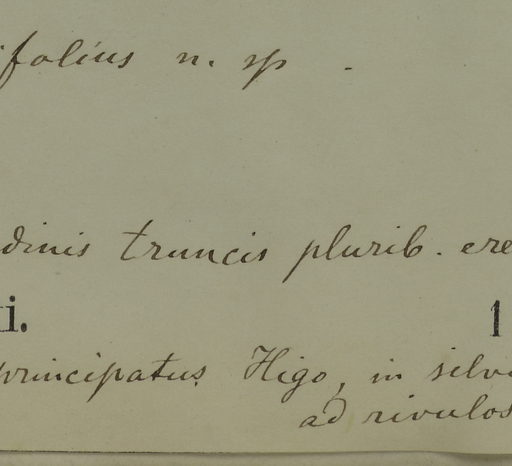 ifolius n. sp
dinis truncis plurib. ere
i. 1
principatus Higo, in silv
ad rivulos